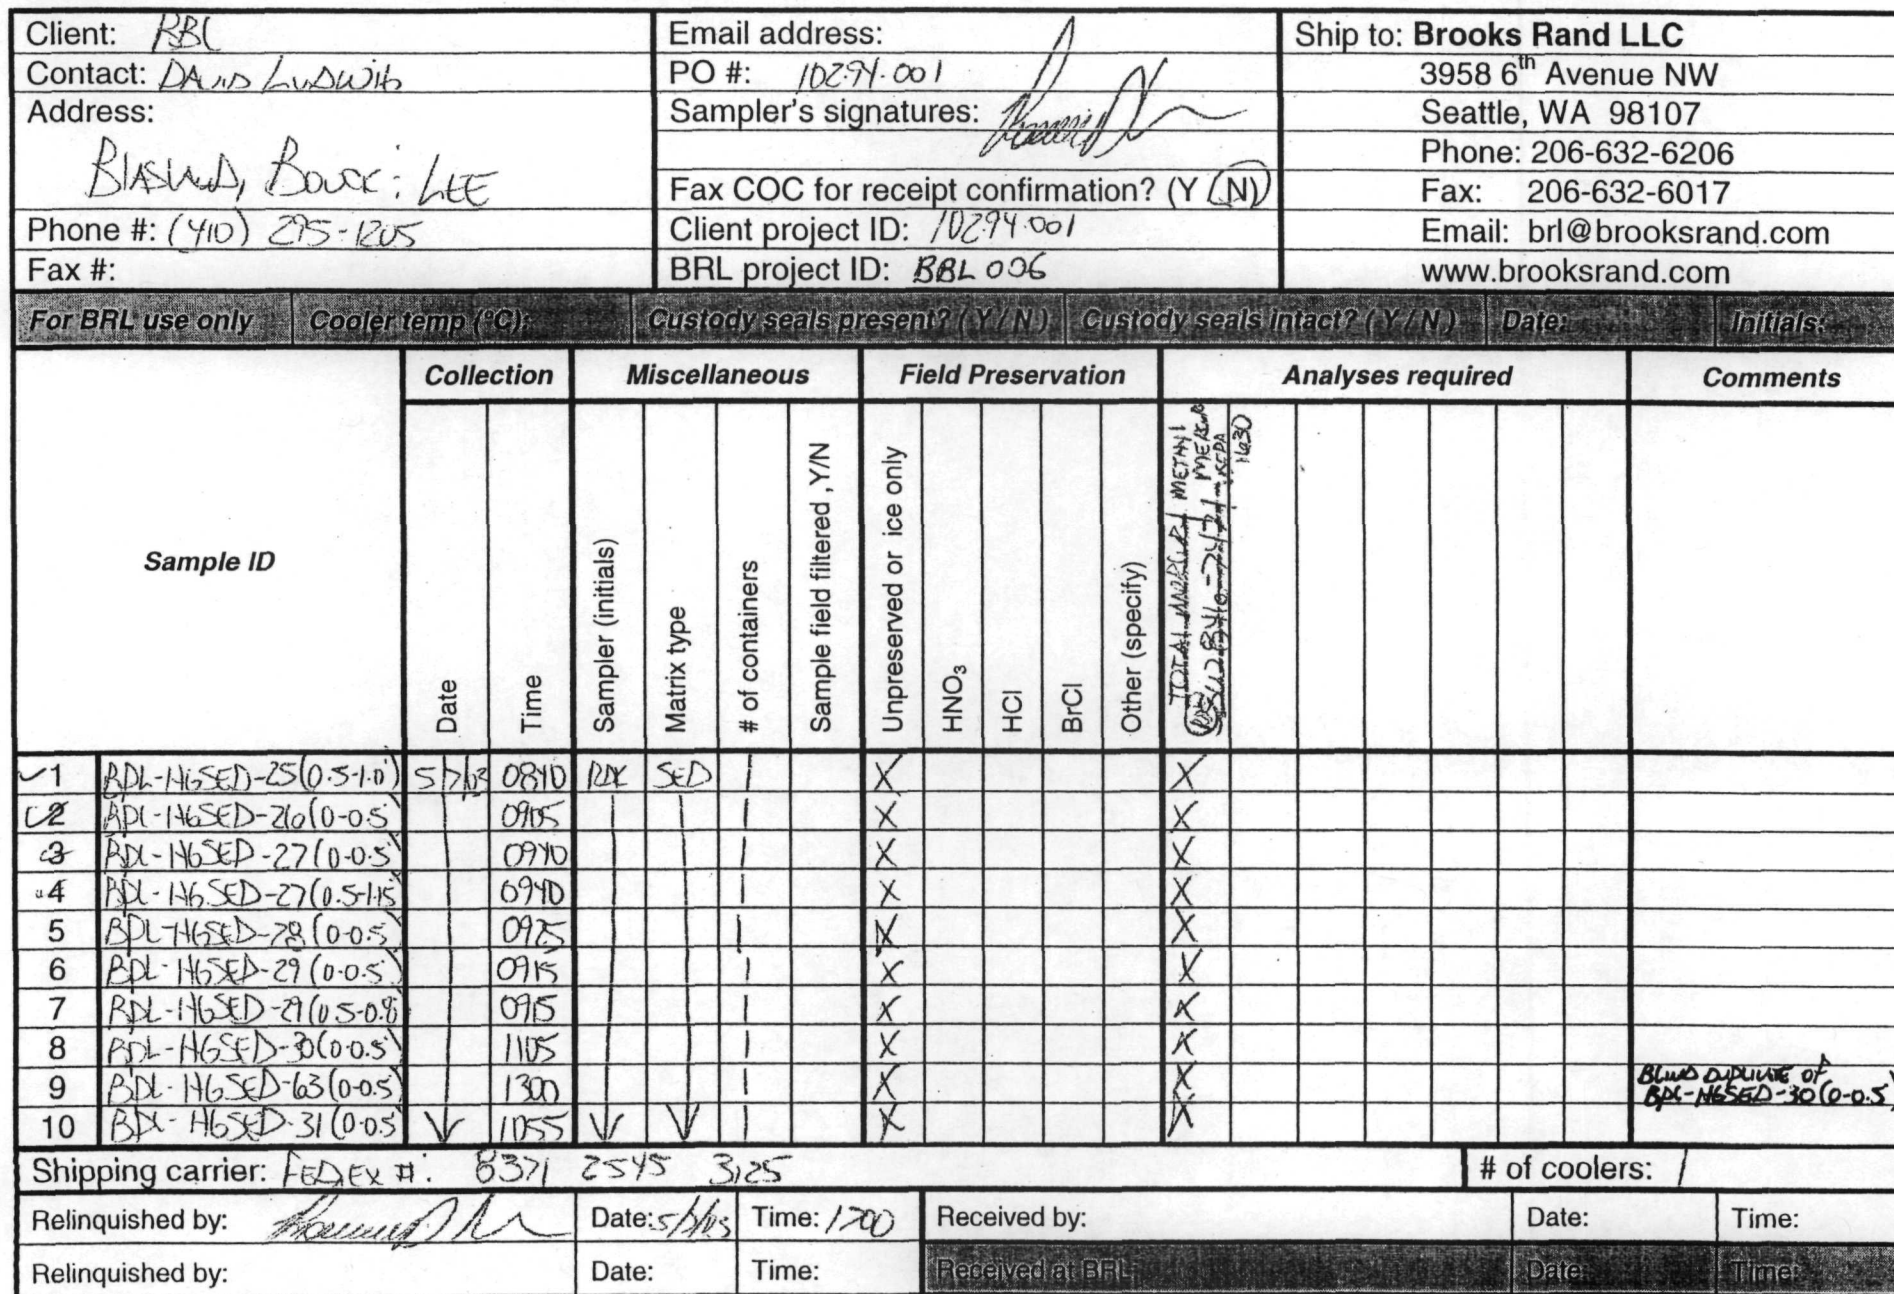 Client: BBL
Contact: DAVID LUDWIG
Address:
BLASLAND, BOUCK : LEE
Phone #: (410) 295-1205
Fax #:
Email address:
PO #: 10294.001
Sampler's signatures:
Fax COC for receipt confirmation? (Y N)
Client project ID: 10294.001
BRL project ID: BBL006
Ship to: Brooks Rand LLC
3958 6th Avenue NW
Seattle, WA 98107
Phone: 206-632-6206
Fax: 206-632-6017
Email: brl@brooksrand.com
www.brooksrand.com
For BRL use only Cooler temp (°C): Custody seals present? (Y / N) Custody seals intact? (Y / N) Date: Initials:
Collection Miscellaneous Field Preservation Analyses required Comments
Sample ID
Date
Time
Sampler (initials)
Matrix type
# of containers
Sample field filtered ,Y/N
Unpreserved or ice only
HNO3
HCl
BrCl
Other (specify)
METHYL
1630
1 BDL-HGSED-25(0.5-1.0) 5/7/03 0840 RDK SED 1 X X
2 BDL-HGSED-26(0-0.5) 0905 1 X X
3 BDL-HGSED-27(0-0.5) 0940 1 X X
4 BDL-HGSED-27(0.5-1.15 0940 1 X X
5 BDL-HGSED-28(0-0.5) 0925 1 X X
6 BDL-HGSED-29(0-0.5) 0915 1 X X
7 BDL-HGSED-29(0.5-0.8 0915 1 X X
8 BDL-HGSED-30(0-0.5) 1105 1 X X
9 BDL-HGSED-63(0-0.5) 1300 1 X X BLIND DUPLICATE OF
BDL-HGSED-30(0-0.5)
10 BDL-HGSED-31(0-0.5 1055 1 X X
Shipping carrier: FEDEX #: 8371 2545 3125 # of coolers: 1
Relinquished by: Date: Time: 1700 Received by: Date: Time:
Relinquished by: Date: Time: Received at BRL Date: Time: